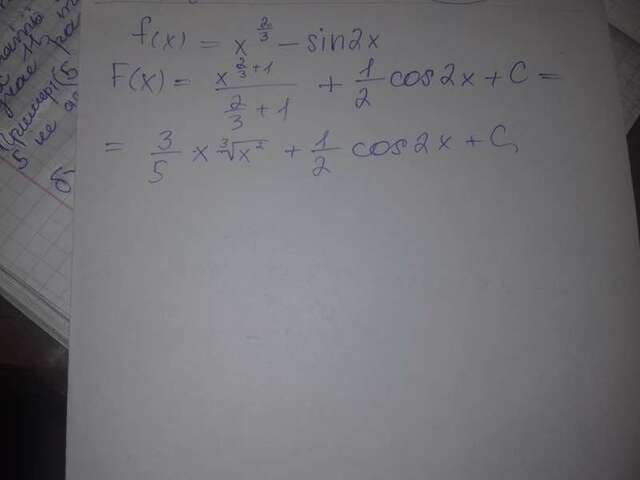 f(x) = x^{2/3} - sin2x
F(x) = \frac{x^{\frac{2}{3}+1}}{\frac{2}{3}+1} + \frac{1}{2} cos2x + C =
= \frac{3}{5} x \sqrt[3]{x^2} + \frac{1}{2} cos2x + C,
5 не